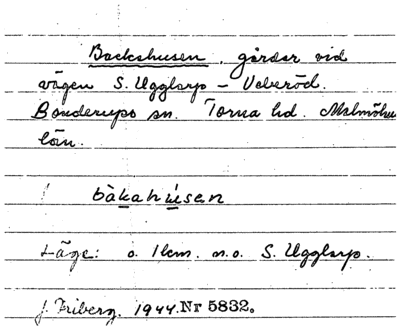 Backshusen, gårdar vid
vägen S. Ugglarp – Veberöd.
Bonderups sn. Torna hd. Malmöhus
län.
bàkahúsen
Läge: o. 1 km. n.o. S. Ugglarp.
J. Friberg. 1944. Nr 5832.